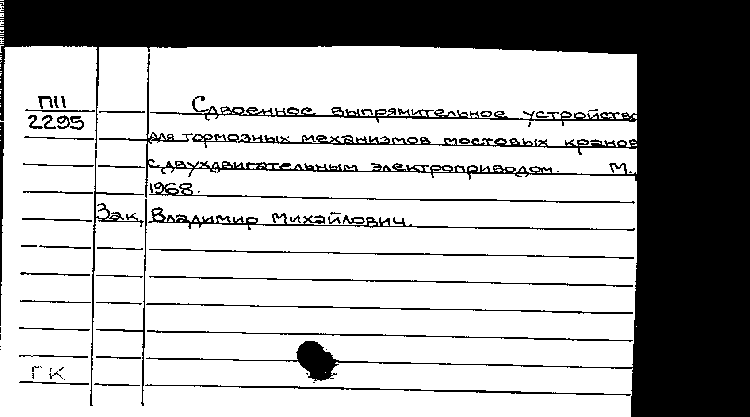 ПII
2295
Сдвоенное выпрямительное устройство
для тормозных механизмов мостовых кранов
с двухдвигательным электроприводом. М.,
1968.
Зак, Владимир Михайлович.
ГК